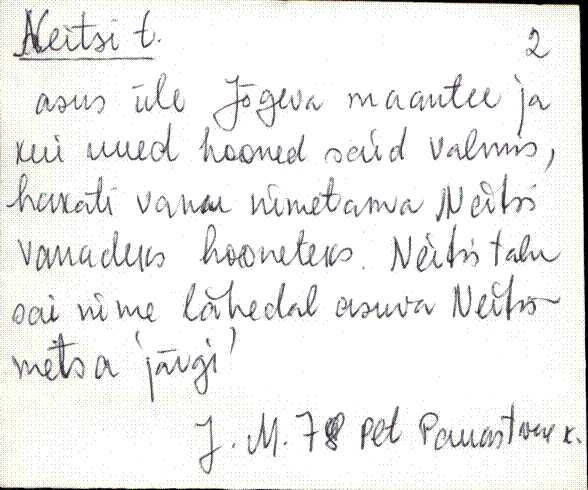 Neitsi t. 2
asus üle Jõgeva maantee ja
kui uued hooned said valmis,
hakati vanu nimetama Neitsi
vanadeks hooneteks. Neitsi talu
sai nime lähedal asuva Neitsi-
metsa järgi
J. M. 78 Pet